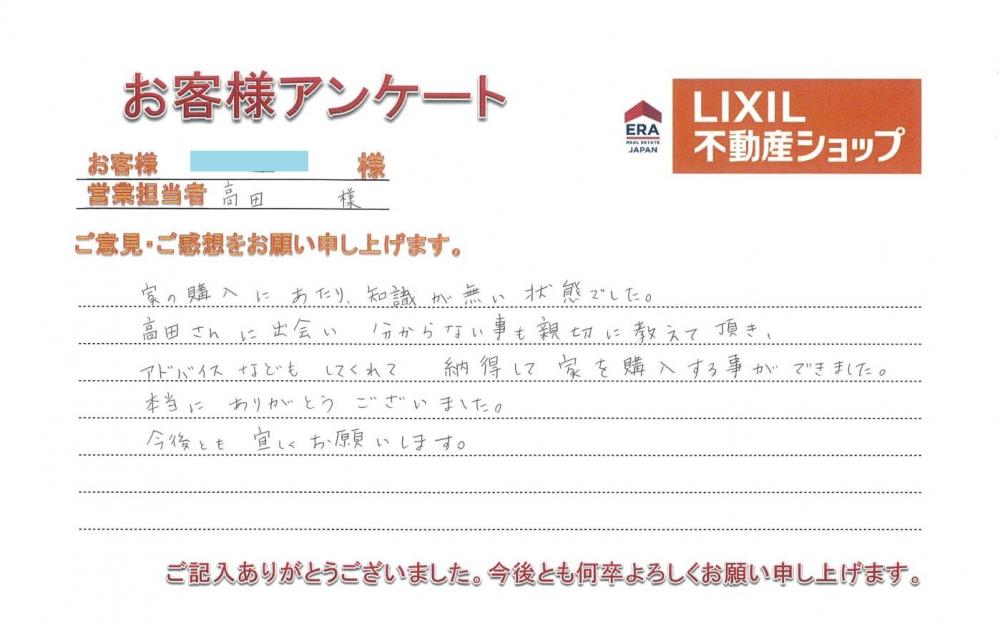 お客様アンケート
ERA
REAL ESTATE
JAPAN
LIXIL
不動産ショップ
お客様 様
営業担当者 高田 様
ご意見・ご感想をお願い申し上げます。
家の購入にあたり、知識が無い状態でした。
高田さんに出会い 分からない事も親切に教えて頂き、
アドバイスなどもしてくれて 納得して家を購入する事ができました。
本当に ありがとう ございました。
今後とも 宜しくお願いします。
ご記入ありがとうございました。今後とも何卒よろしくお願い申し上げます。